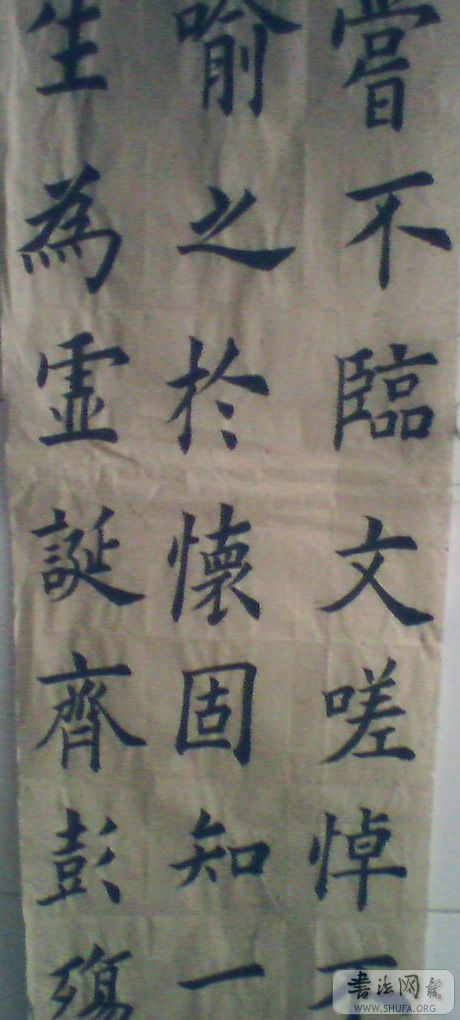 嘗不臨文嗟悼不
喻之於懷固知一
生為虛誕齊彭殤
書法网
WWW.SHUFA.ORG